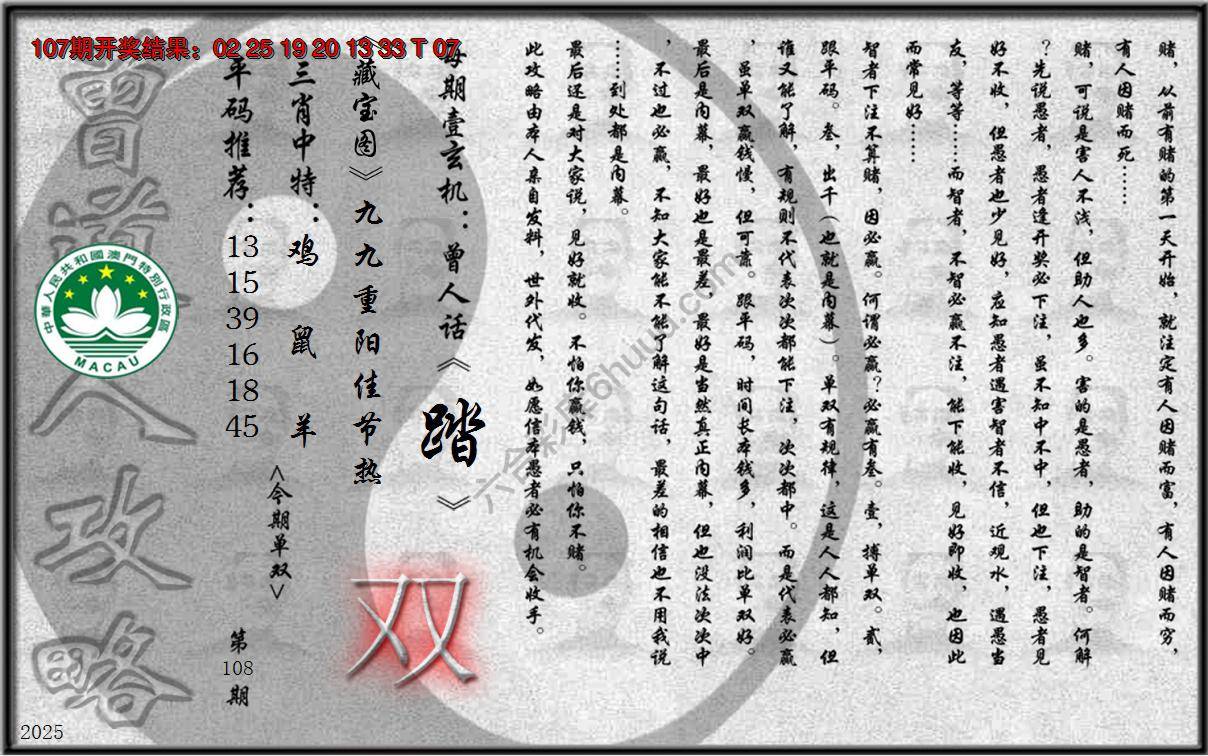 107期开奖结果：02 25 19 20 13 33 T 07
赌，从前有赌的第一天开始，就注定有人因赌而富，有人因赌而穷，
有人因赌而死……
赌，可说是害人不浅，但助人也多。害的是愚者，助的是智者。何解
？先说愚者，愚者逢开奖必下注，虽不知中不中，但也下注，愚者见
好不收，但愚者也少见好，应知愚者遇害智者不信，近观水，遇愚当
友，等等……而智者，不智必赢不注，能下能收，见好即收，也因此
而常见好……
智者下注不算赌，因必赢。何谓必赢？必赢有叁。壹，搏单双。贰，
跟平码。叁，出千（也就是内幕）。单双有规律，这是人人都知，但
谁又能了解，有规则不代表次次都能下注，次次都中。而是代表必赢
，虽单双赢钱慢，但可靠。跟平码，时间长本钱多，利润比单双好。
最后是内幕，最好也是最差，最好是当然真正内幕，但也没法次次中
，不过也必赢，不知大家能不能了解这句话，最差的相信也不用我说
……到处都是内幕。
最后还是对大家说，见好就收。不怕你赢钱，只怕你不赌。
此攻略由本人亲自发料，世外代发，如愿信本愚者必有机会收手。
每期壹玄机：曾人话《踏》
《藏宝图》九九重阳佳节热
双
三肖中特：鸡鼠羊
<今期单双>
平码推荐：
13
15
39
16
18
45
第
108
期
曾道人攻略
中華人民共和國澳門特別行政區
MACAU
六合彩库6huuu.com
2025